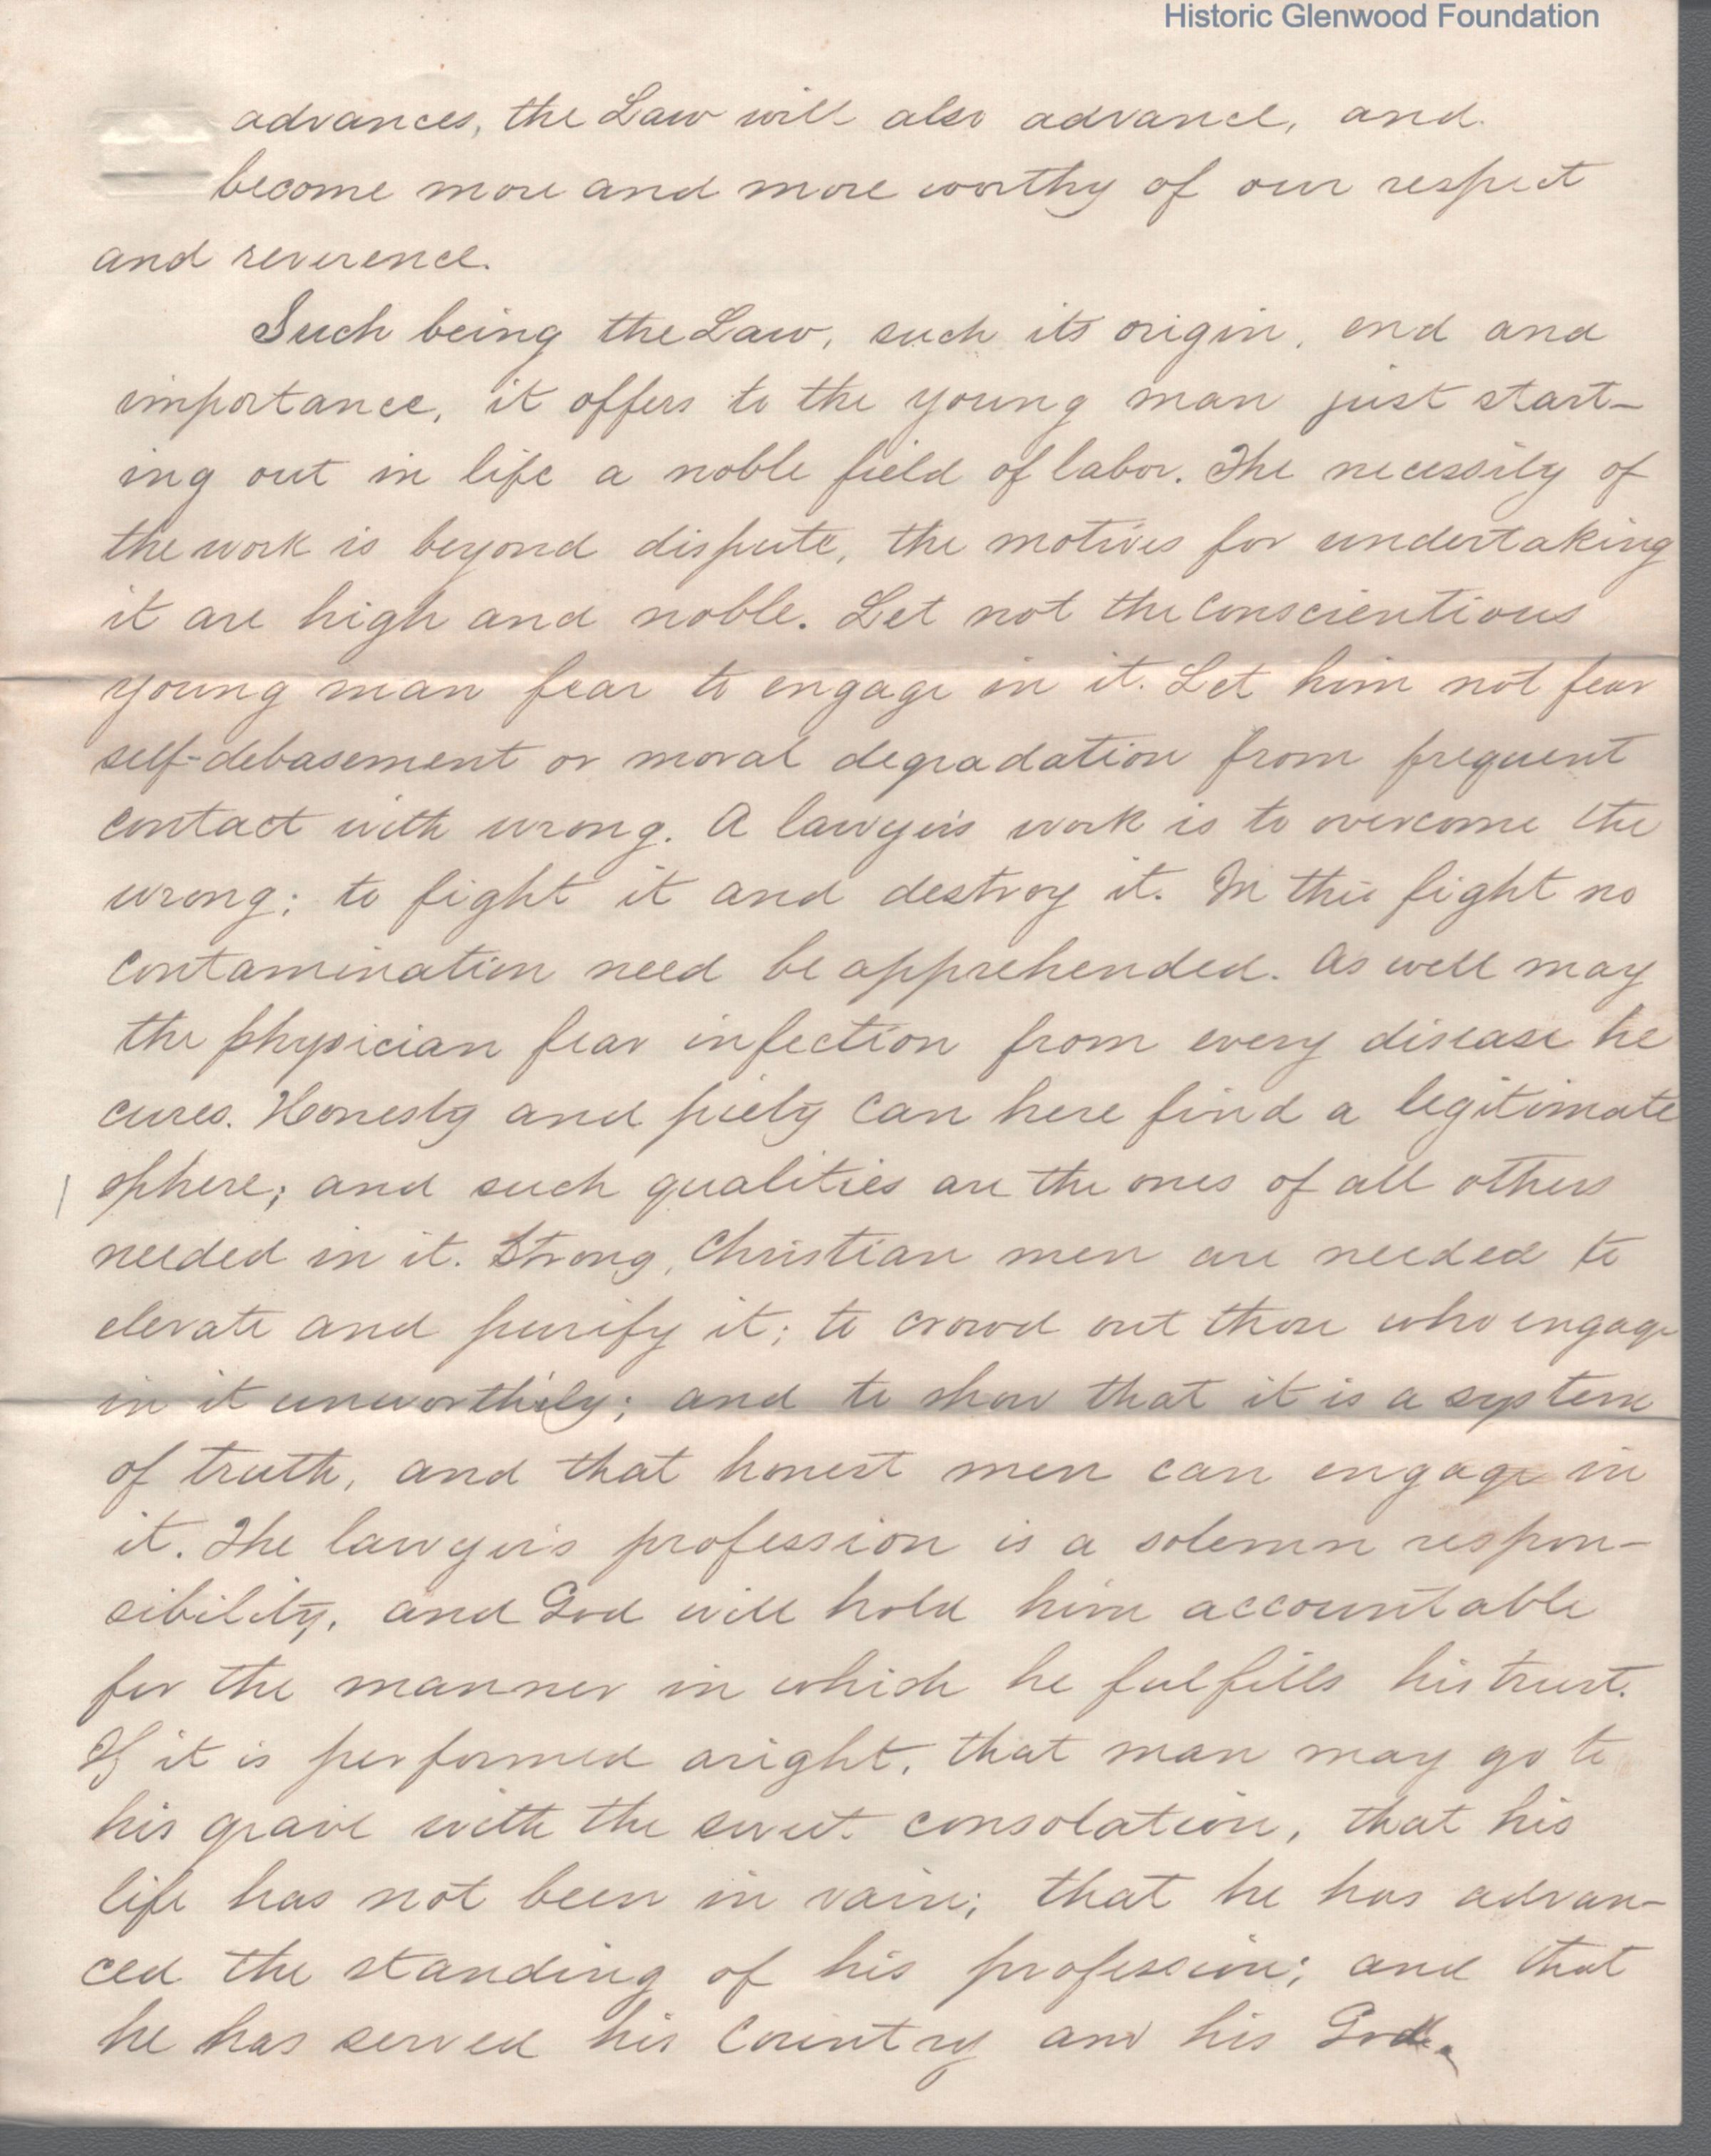 Historic Glenwood Foundation
advances, the Law will also advance, and
become more and more worthy of our respect
and reverence.
Such being the Law, such its origin, end and
importance, it offers to the young man just start-
ing out in life a noble field of labor. The necessity of
the work is beyond dispute, the motives for undertaking
it are high and noble. Let not the conscientious
young man fear to engage in it. Let him not fear
self-debasement or moral degradation from frequent
contact with wrong. A lawyer's work is to overcome the
wrong; to fight it and destroy it. In this fight no
contamination need be apprehended. As well may
the physician fear infection from every disease he
cures. Honesty and piety can here find a legitimate
sphere; and such qualities are the ones of all others
needed in it. Strong, Christian men are needed to
elevate and purify it; to crowd out those who engage
in it unworthily; and to show that it is a system
of truth, and that honest men can engage in
it. The lawyer's profession is a solemn respon-
sibility, and God will hold him accountable
for the manner in which he fulfills his trust.
If it is performed aright, that man may go to
his grave with the sweet consolation, that his
life has not been in vain; that he has advan-
ced the standing of his profession; and that
he has served his Country and his God.